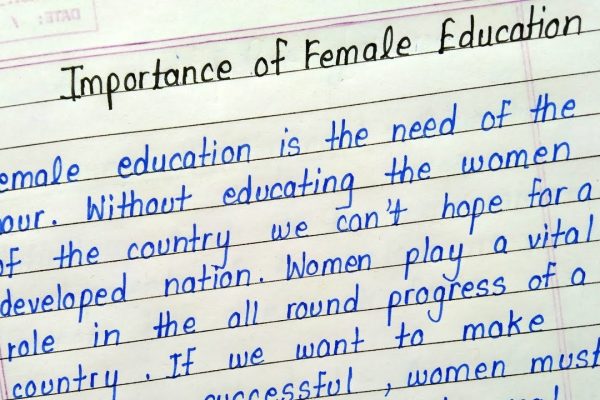 DATE:
Importance of Female Education
emale education is the need of the
our. Without educating the women
of the country we can't hope for a
developed nation. Women play a vital
role in the all round progress of a
country. If we want to make
successful, women must